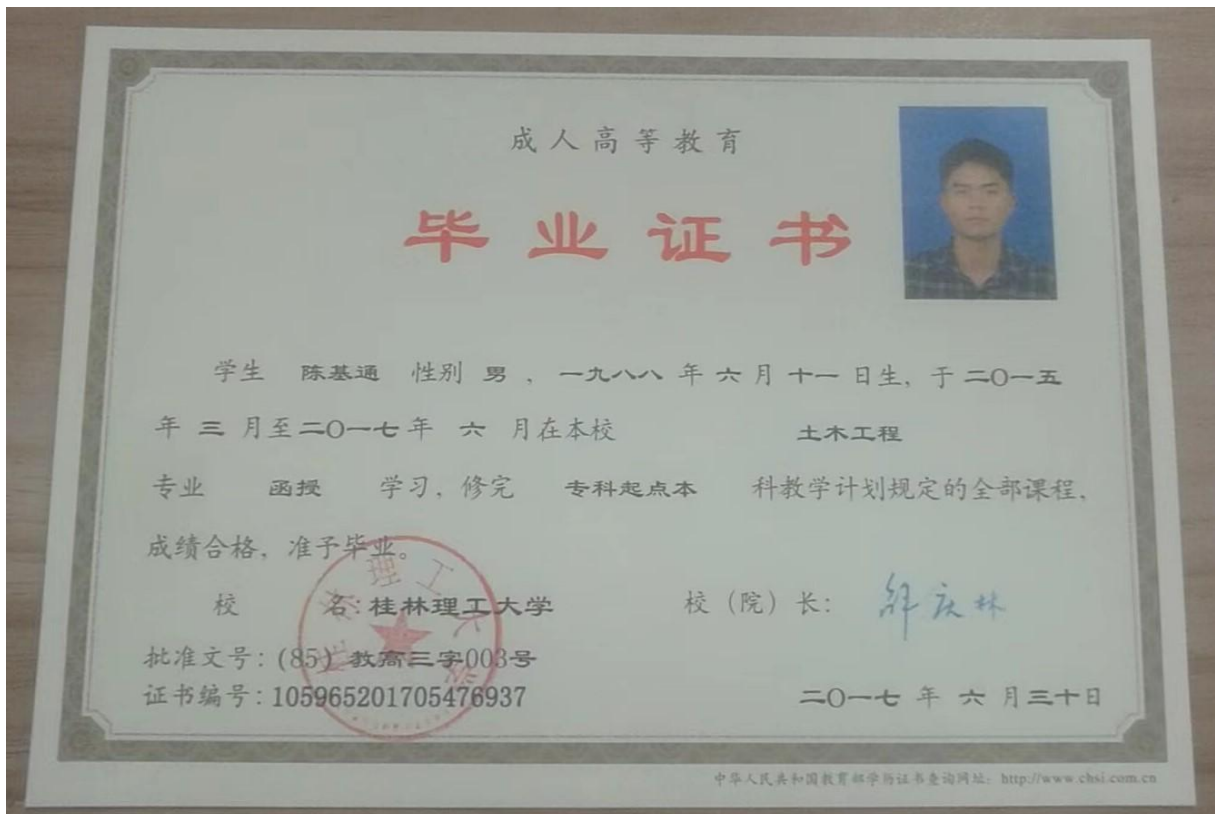 成人高等教育
毕业证书
学生 陈基通 性别 男 ，一九八八 年 六 月 十一 日生，于 二〇一五
年 三 月至 二〇一七 年 六 月在本校 土木工程
专业 函授 学习，修完 专科起点本 科教学计划规定的全部课程，
成绩合格，准予毕业。
校 名：桂林理工大学 校（院）长：
批准文号：(85) 教高三字003号
证书编号：105965201705476937 二〇一七 年 六 月 三十 日
桂林理工大学
中华人民共和国教育部学历证书查询网址：http://www.chsi.com.cn